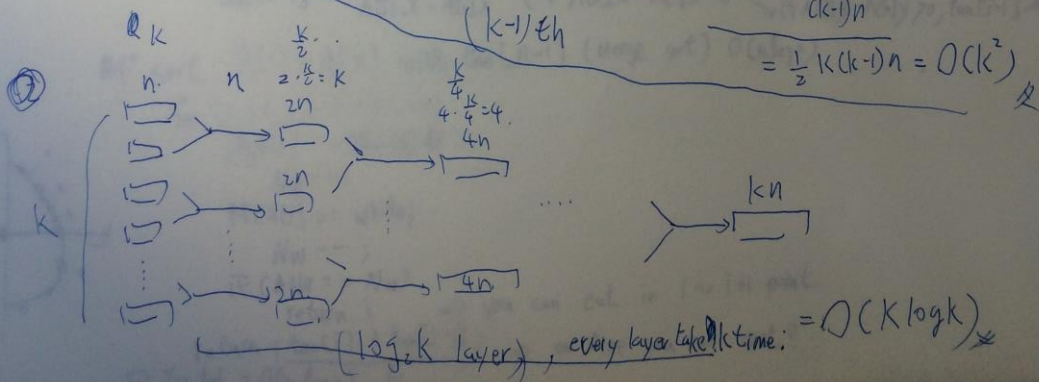 (k-1)th
(k-1)n
= 1/2 k(k-1)n = O(k²)
k
n
n
k/2
2·k/2=k
2n
k/4
4·k/4=4
4n
2n
kn
k
....
2n
4n
(log₂k layer), every layer take nk time: = O(k log k)